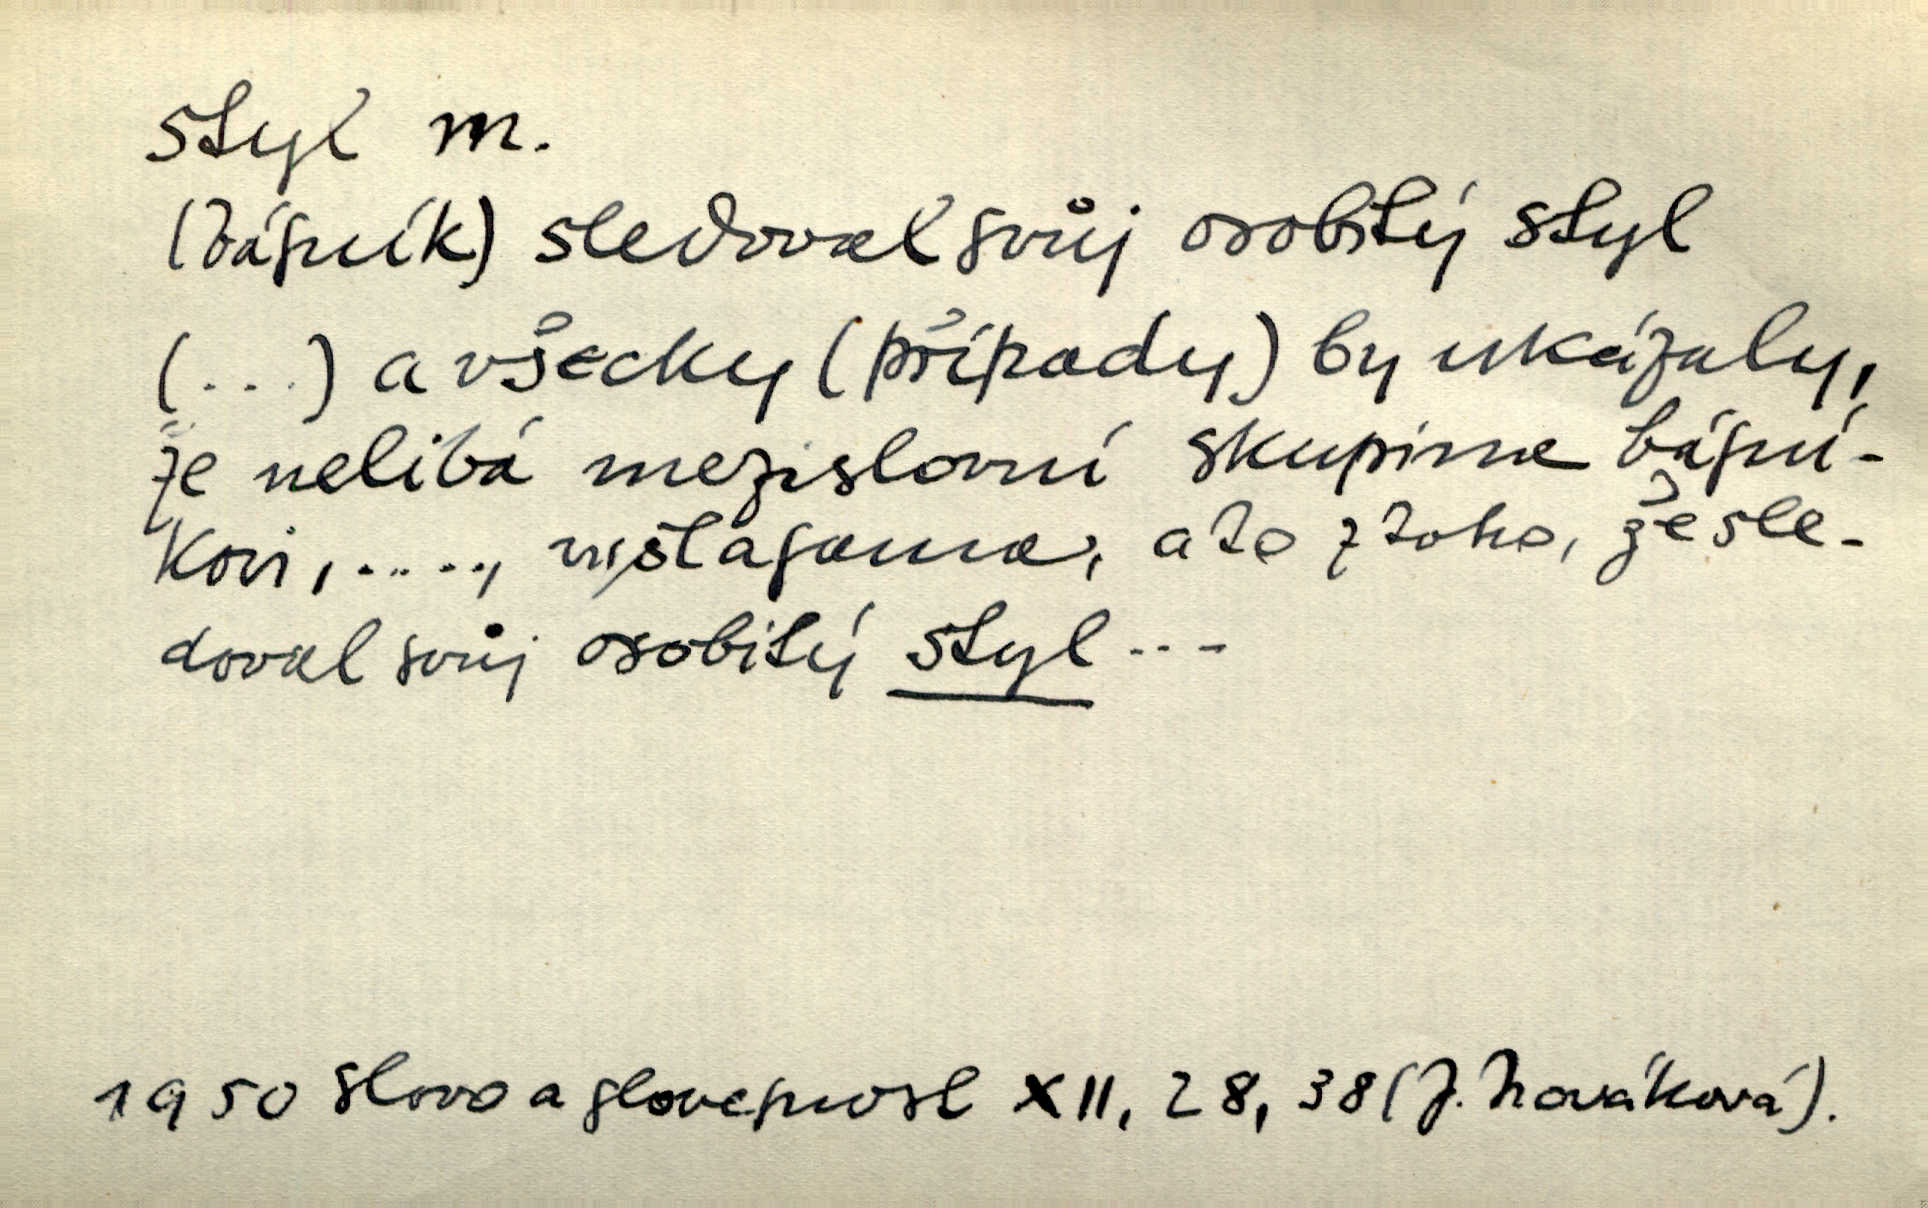 styl m.
(básník) sledoval svůj osobitý styl
(...) a všecky (případy) by ukázaly,
že nelibá mezislovní skupina básní-
kovi, ....., a to z toho, že sle-
doval svůj osobitý styl ...
1950 Slovo a slovesnost XII, 28, 38 (J. Nováková).